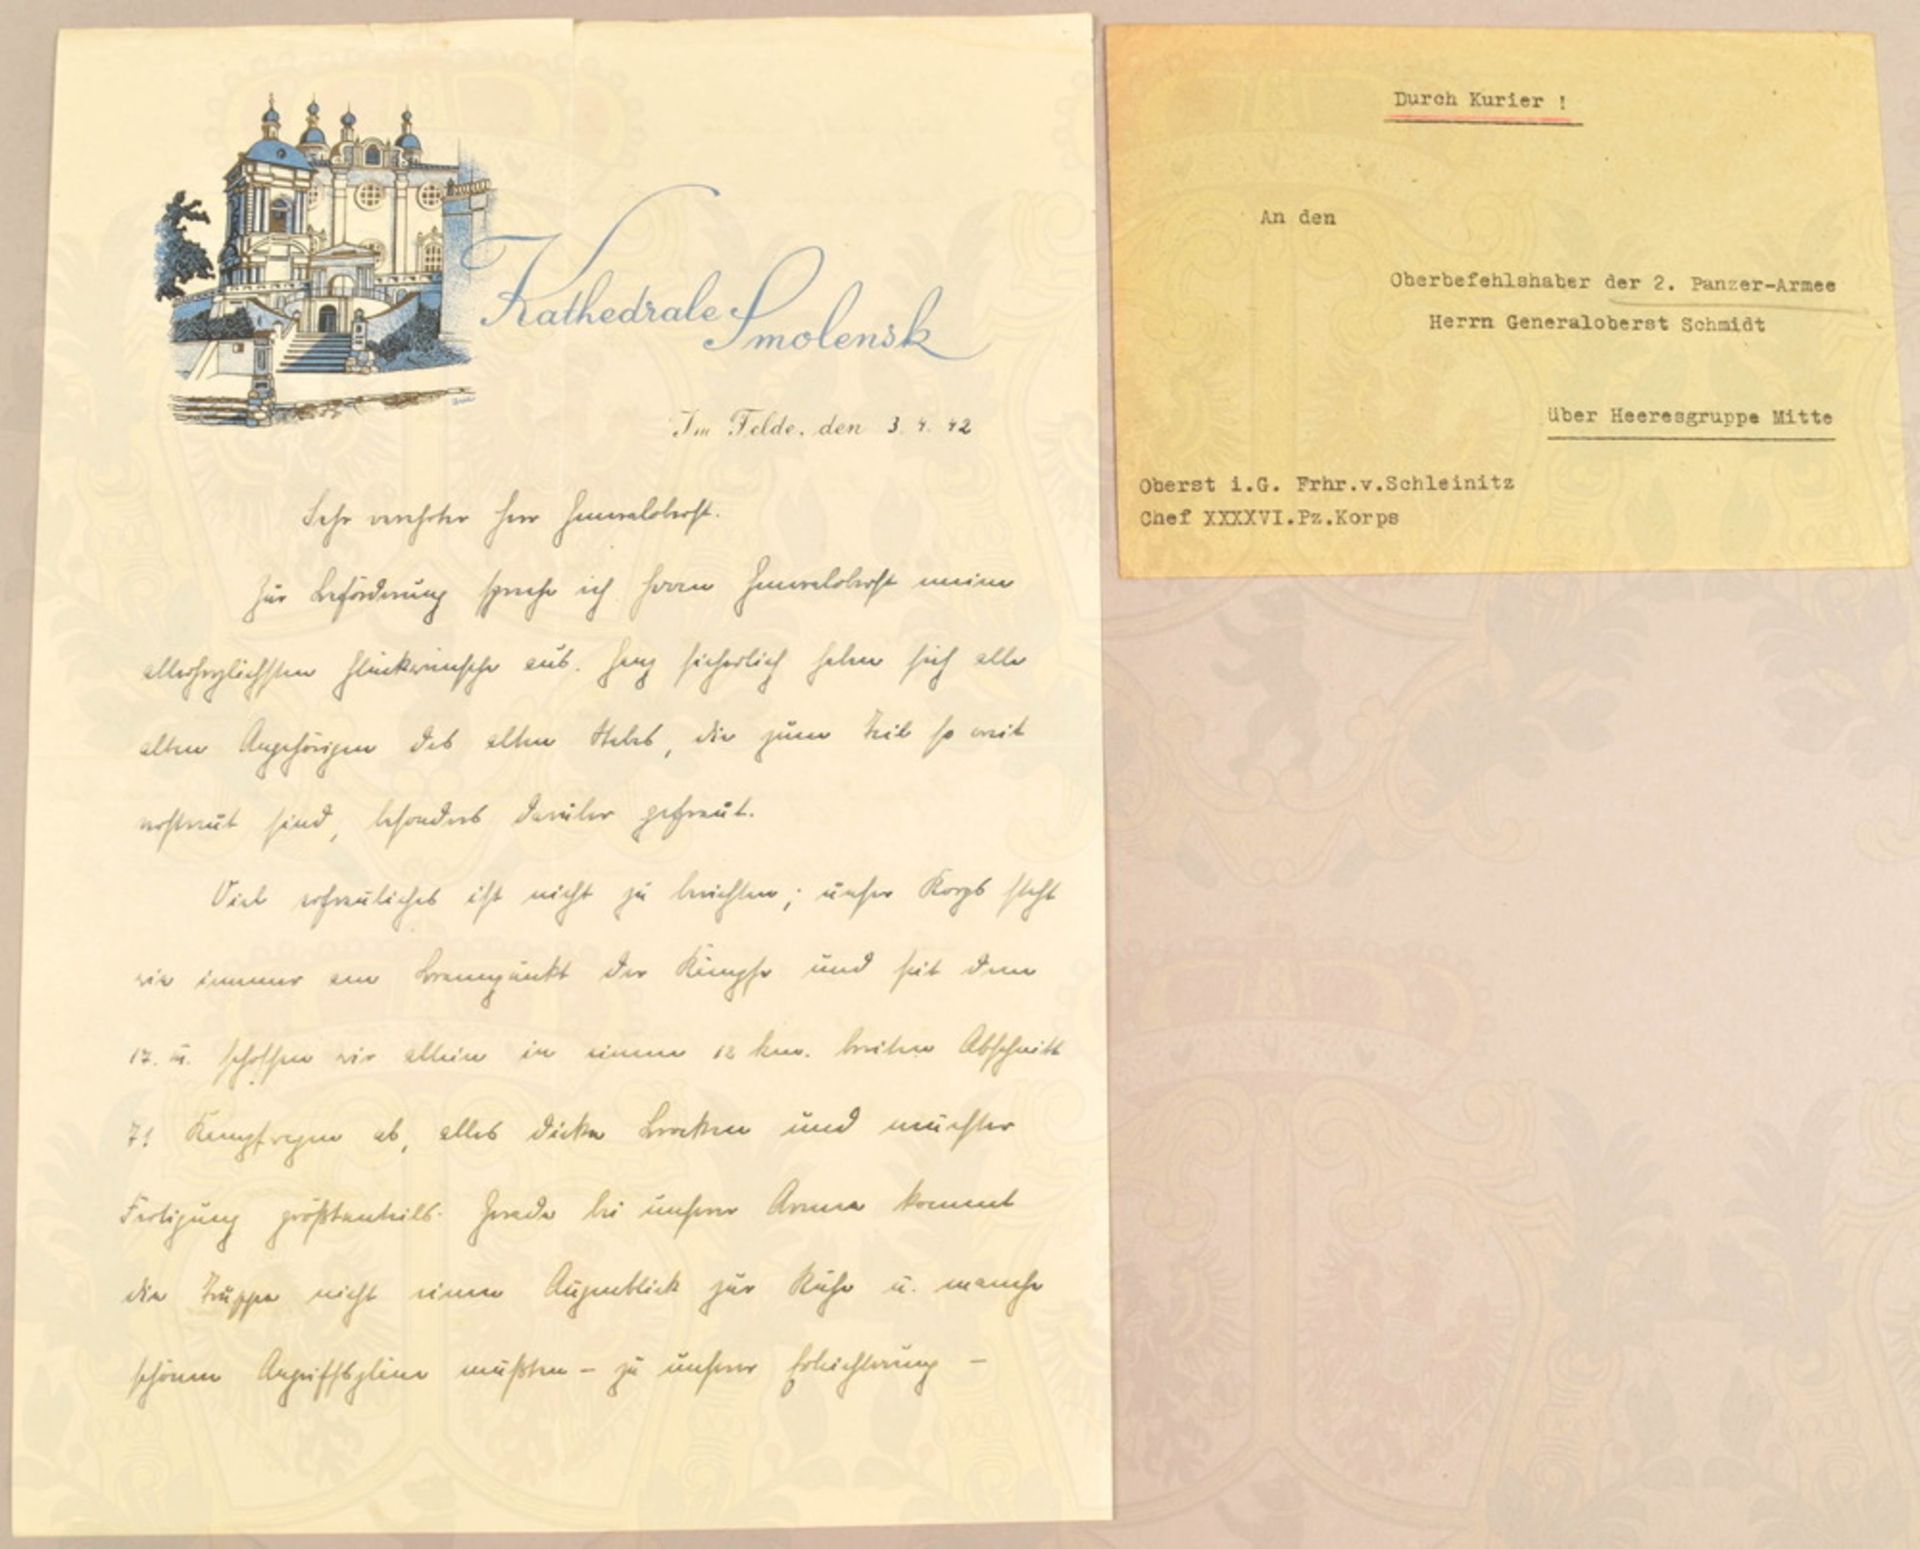 Kathedrale Smolensk
Im Felde, den 3. 4. 42
Sehr verehrter Herr Generaloberst.
Zur Beförderung spreche ich Herrn Generaloberst meine
allerherzlichsten Glückwünsche aus. Ganz sicherlich haben sich alle
alten Angehörigen des alten Stabes, die zum Teil so weit
verstreut sind, besonders darüber gefreut.
Viel erfreuliches ist nicht zu berichten; unser Korps steht
wie immer am Brennpunkt der Kämpfe und seit dem
17. III. schossen wir allein in einem 12 km. breiten Abschnitt
71 Kampfwagen ab, alles dicke Brocken und neuester
Fertigung größtenteils. Gerade bei unserer Armee kommt
die Truppe nicht einen Augenblick zur Ruhe u. manche
schönen Angriffspläne mußten – zu unserer Erleichterung –
Durch Kurier !
An den
Oberbefehlshaber der 2. Panzer-Armee
Herrn Generaloberst Schmidt
über Heeresgruppe Mitte
Oberst i.G. Frhr.v.Schleinitz
Chef XXXXVI.Pz.Korps